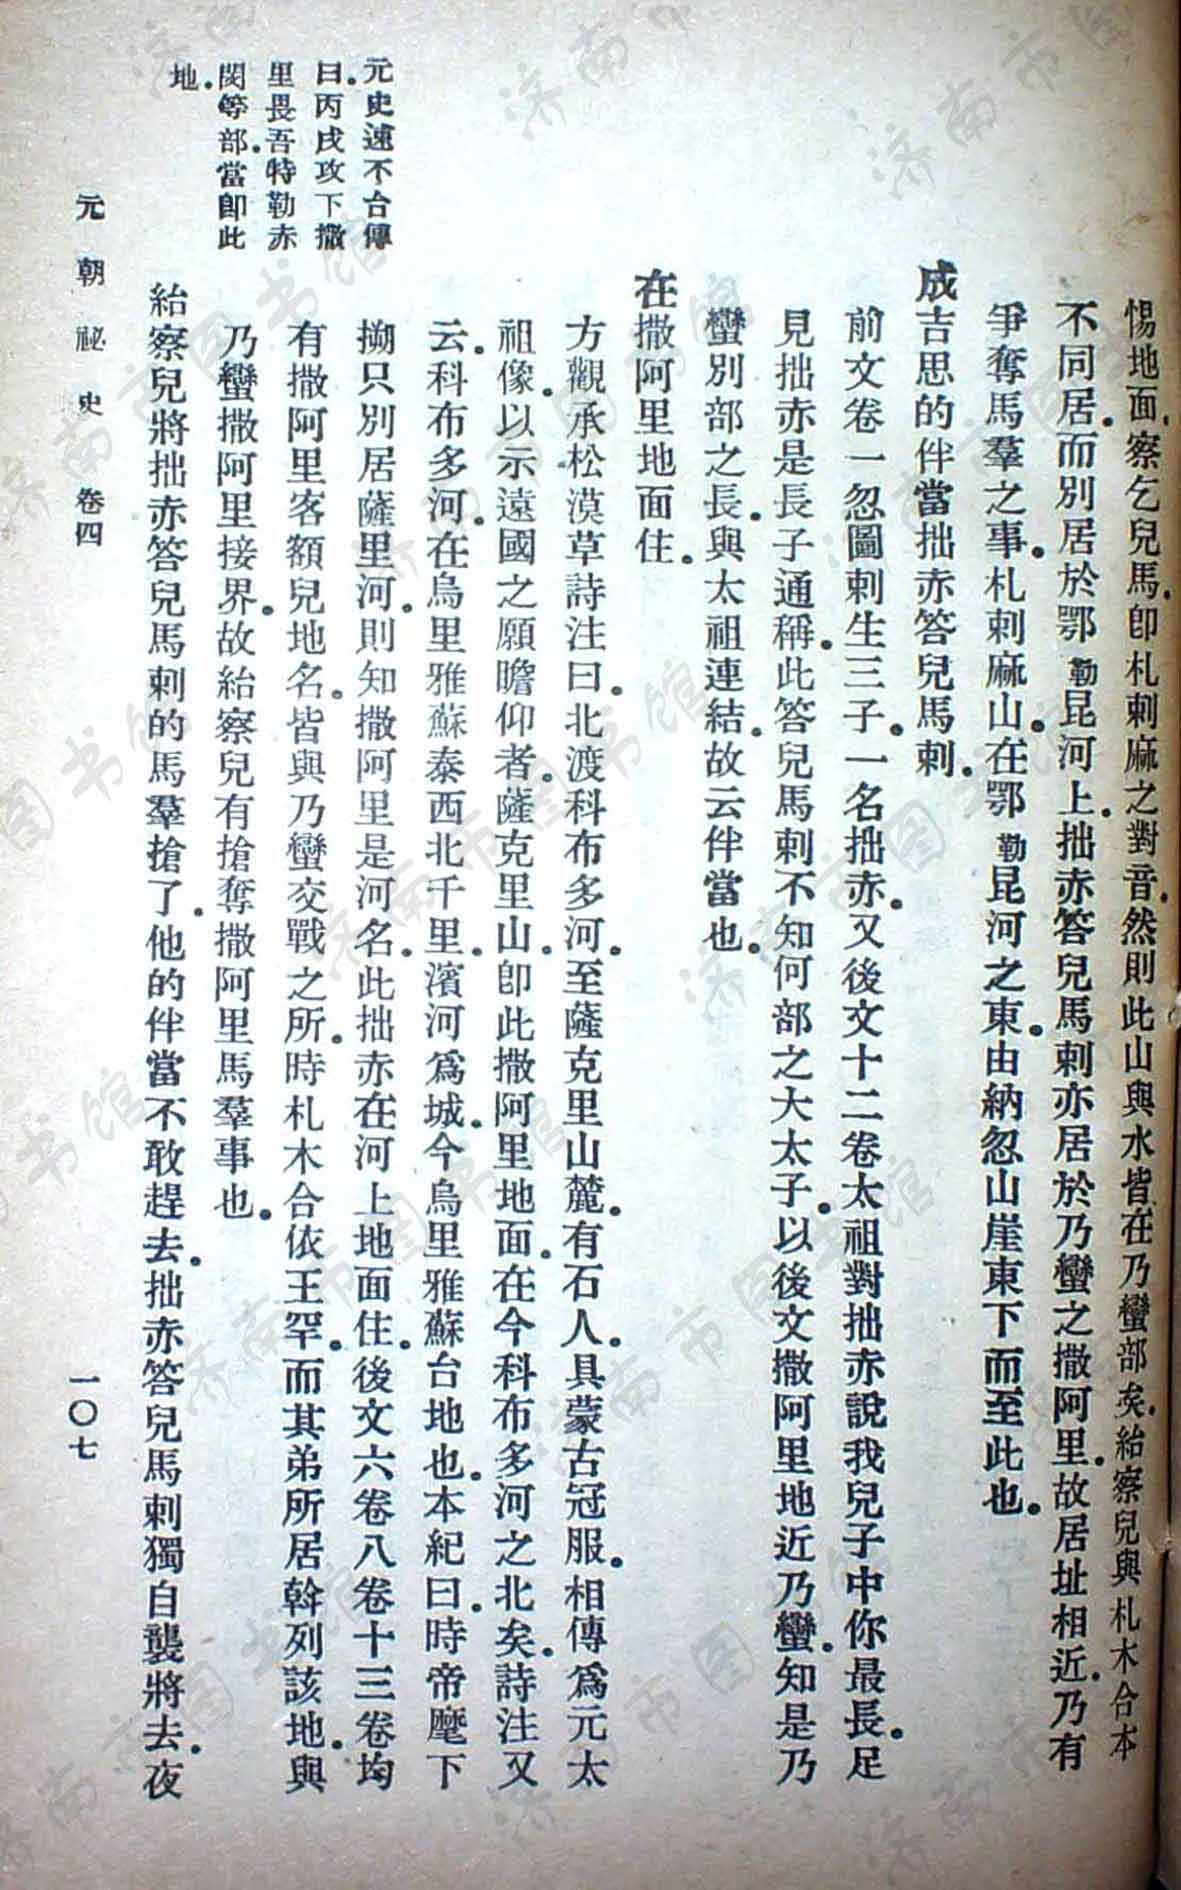 惕地面察乞兒馬卽札剌麻之對音然則此山與水皆在乃蠻部矣紿察兒與札木合本
不同居而別居於鄂勒昆河上拙赤答兒馬剌亦居於乃蠻之撒阿里故居址相近乃有
爭奪馬羣之事札剌麻山在鄂勒昆河之東由納忽山崖東下而至此也
成吉思的伴當拙赤答兒馬剌
前文卷一忽圖剌生三子一名拙赤又後文十二卷太祖對拙赤說我兒子中你最長足
見拙赤是長子通稱此答兒馬剌不知何部之大太子以後文撒阿里地近乃蠻知是乃
蠻別部之長與太祖連結故云伴當也
在撒阿里地面住
方觀承松漠草詩注曰北渡科布多河至薩克里山麓有石人具蒙古冠服相傳爲元太
祖像以示遠國之願瞻仰者薩克里山卽此撒阿里地面在今科布多河之北矣詩注又
云科布多河在烏里雅蘇泰西北千里濱河爲城今烏里雅蘇台地也本紀曰時帝麾下
搠只別居薩里河則知撒阿里是河名此拙赤在河上地面住後文六卷八卷十三卷均
有撒阿里客額兒地名皆與乃蠻交戰之所時札木合依王罕而其弟所居斡列該地與
乃蠻撒阿里接界故紿察兒有搶奪撒阿里馬羣事也
紿察兒將拙赤答兒馬剌的馬羣搶了他的伴當不敢趕去拙赤答兒馬剌獨自襲將去夜
元史速不台傳
曰丙戌攻下撒
里畏吾特勒赤
閔等部當卽此
地
元朝祕史 卷四
一〇七
濟南市图书馆